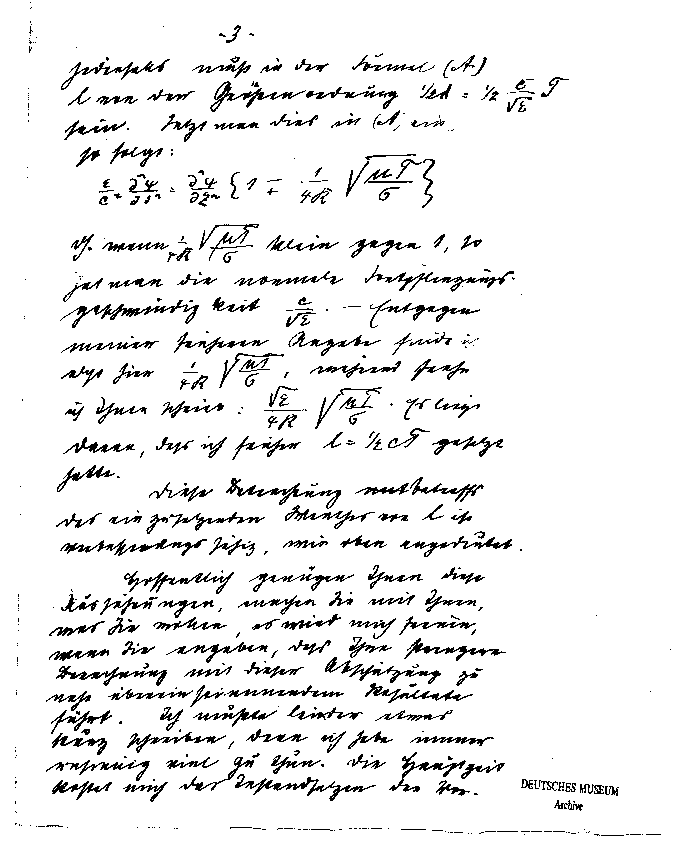 -3-
Jedenfalls muß in der Formel (A)
l von der Größenordnung 1/2 λ = 1/2 c/√ε T
sein. Setzt man dies in (A) ein,
so folgt:
ε/c² ∂²ψ/∂t² = ∂²ψ/∂z² { 1 ∓ 1/4R √(μT/σ) }
D.h. wenn 1/4R √(μT/σ) klein gegen 1, so
hat man die normale Fortpflanzungs-
geschwindigkeit c/√ε. — Entgegen
meiner früheren Angabe finde ich
also hier 1/4R √(μT/σ), während früher
ich Ihnen schrieb: √ε/4R √(μT/σ). Es liegt
daran, daß ich früher l = 1/2 cT gesetzt
hatte.
Diese Betrachtung betreffs
des einzusetzenden Werthes von l ist
verbesserungsfähig, wie oben angedeutet.
Hoffentlich genügen Ihnen diese
Ausführungen, machen Sie mit Ihnen,
was Sie wollen, es wird mich freuen,
wenn Sie angeben, daß Ihre strengere
Berechnung mit dieser Abschätzung zu
nahe übereinstimmendem Resultate
führt. Ich mußte leider etwas
kurz schreiben, denn ich habe immer
viel zu thun. Die Hauptzeit
kostet mich das Instandsetzen der Vor-
DEUTSCHES MUSEUM
Archive